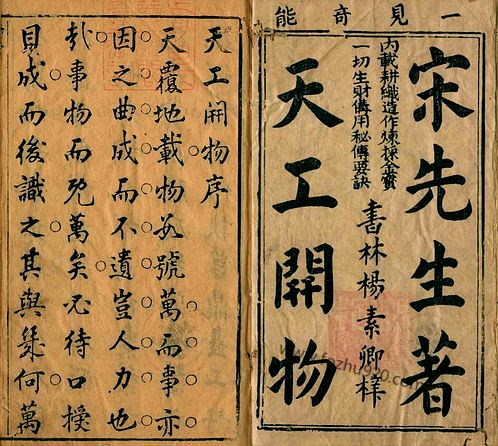 一見奇能
宋先生著
內載耕織造作煉採金寶
一切生財備用秘傳要訣
書林楊素卿梓
天工開物
天工開物序
天覆地載物数號萬而事亦
因之曲成而不遺豈人力也
㢤事物而既萬矣必待口授
目成而後識之其與幾何萬